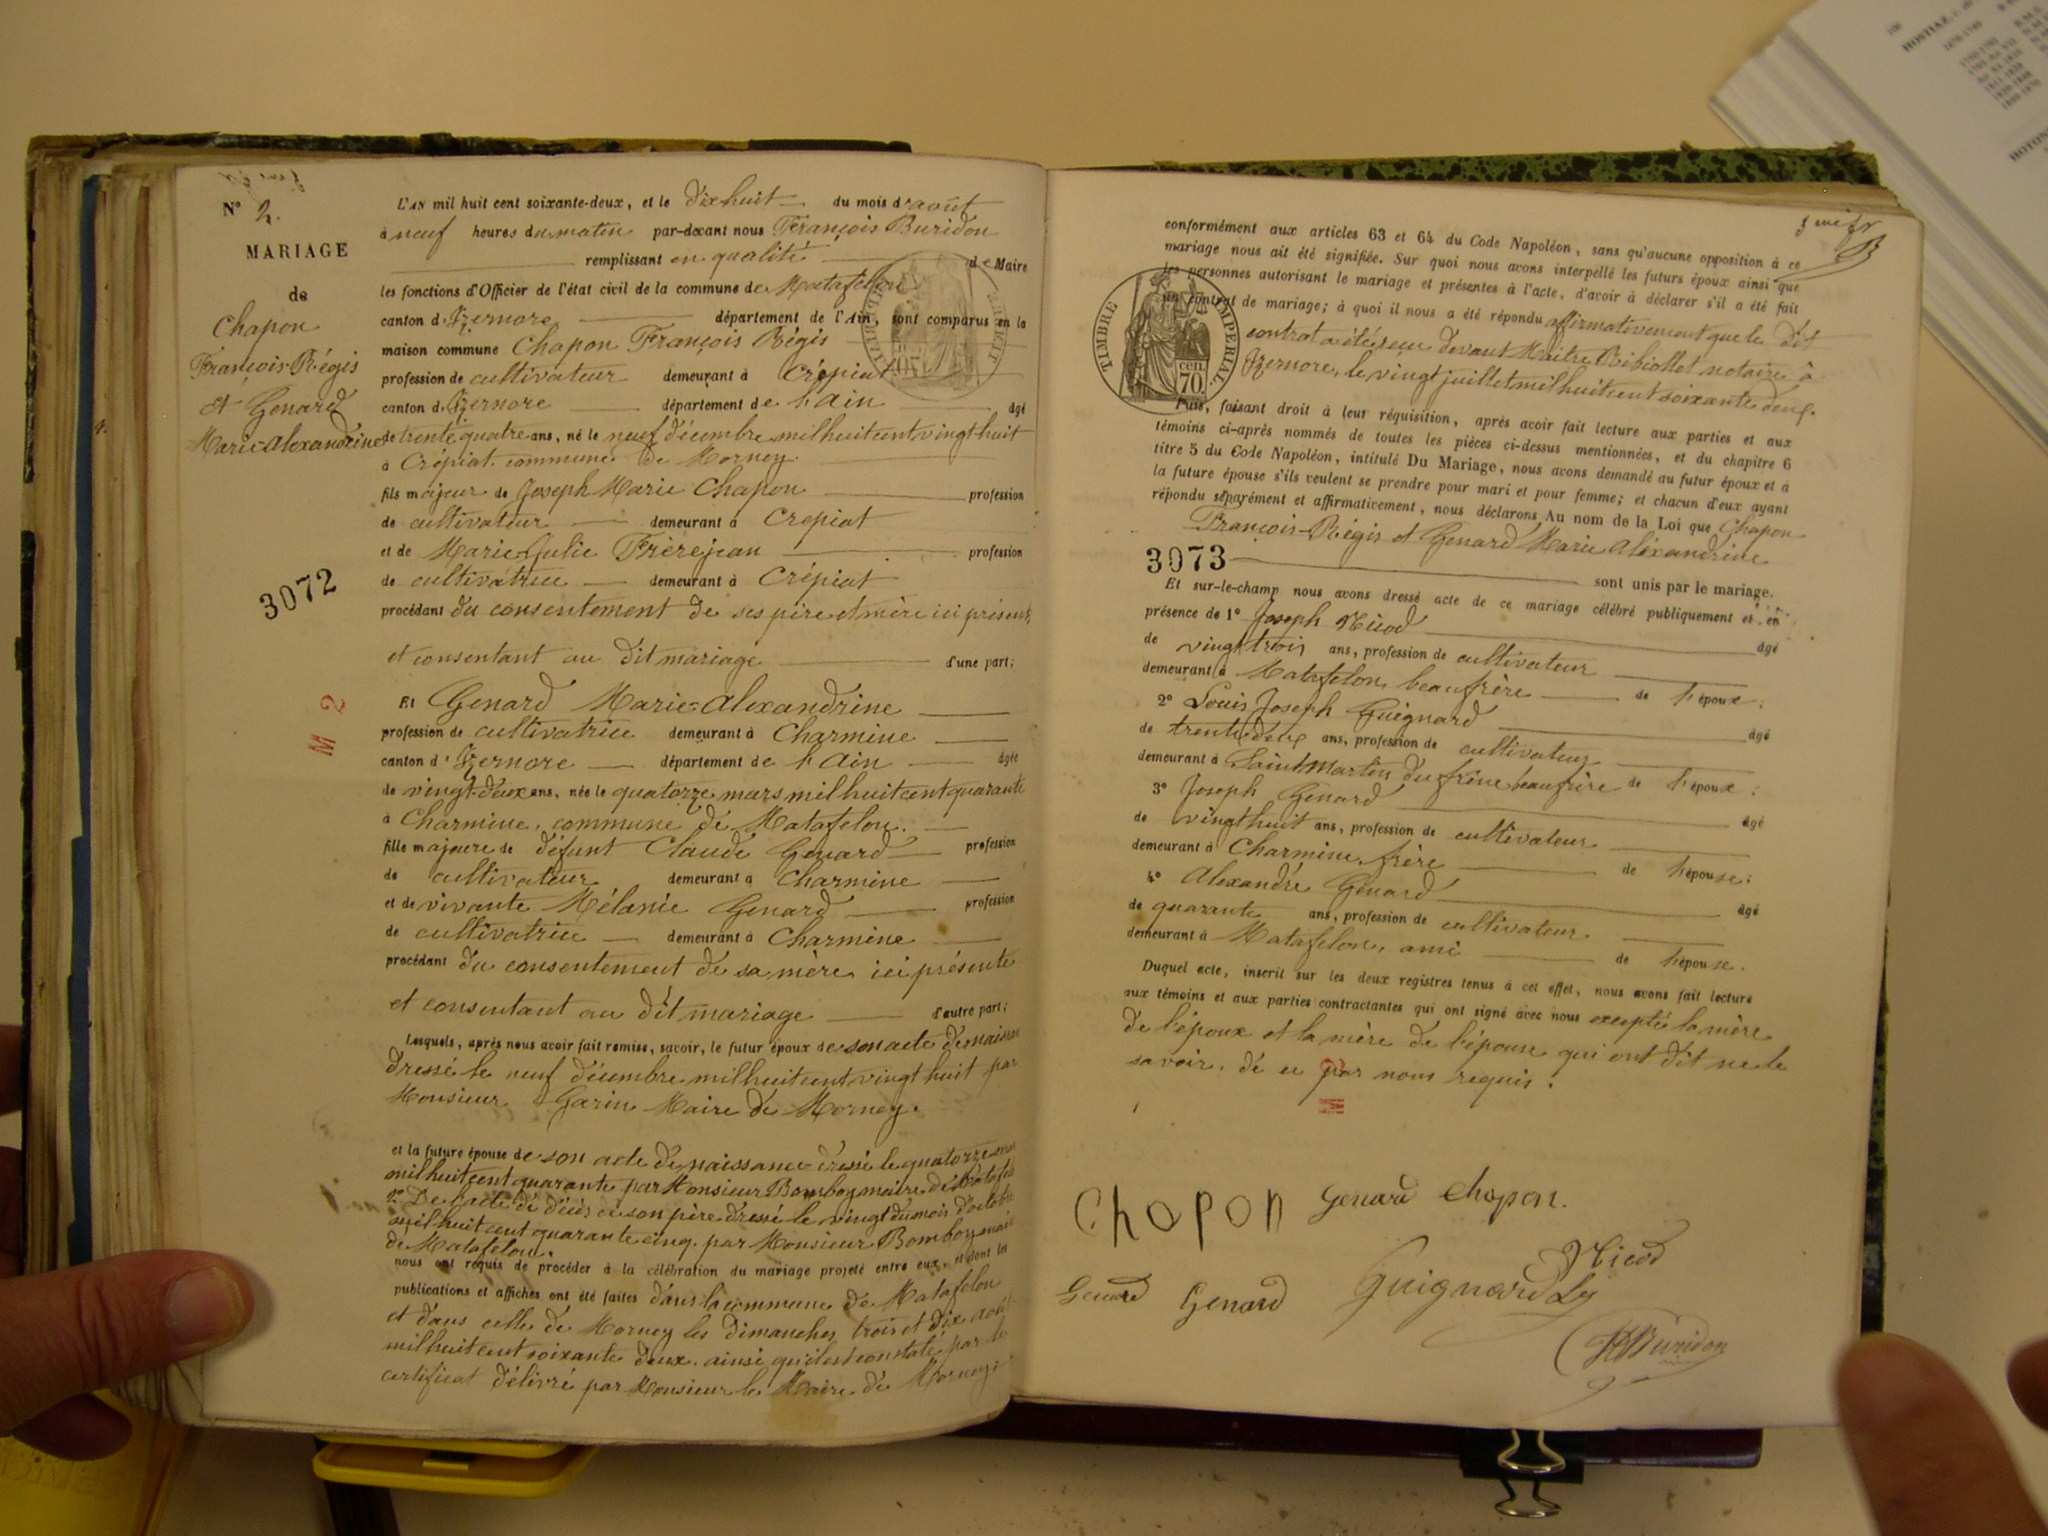 N° 2.
MARIAGE
de
Chapon
François-Régis
et Genard
Marie-Alexandrine
3072
M 2
L'AN mil huit cent soixante-deux, et le dixhuit du mois d'août
à neuf heures du matin par-devant nous François Buridon
remplissant en qualité de Maire
les fonctions d'Officier de l'état civil de la commune de Matafelon
canton d'Izernore département de l'Ain, sont comparus en la
maison commune Chapon François Régis
profession de cultivateur demeurant à Crépiat
canton d'Izernore département de l'Ain âgé
de trente quatre ans, né le neuf décembre mil huit cent vingt huit
à Crépiat commune de Mornay
fils majeur de Joseph Marie Chapon profession
de cultivateur demeurant à Crepiat
et de Marie-Julie Frèrejean profession
de cultivatrice demeurant à Crépiat
procédant du consentement de ses père et mère ici présents
et consentant au dit mariage d'une part;
Et Genard Marie-Alexandrine
profession de cultivatrice demeurant à Charmine
canton d'Izernore département de l'Ain âgée
de vingt-deux ans, née le quatorze mars mil huit cent quarante
à Charmine, commune de Matafelon.
fille majeure de défunt Claude Genard profession
de cultivateur demeurant à Charmine
et de vivante Mélanie Genard profession
de cultivatrice demeurant à Charmine
procédant du consentement de sa mère ici présente
et consentant au dit mariage d'autre part;
Lesquels, après nous avoir fait remise, savoir, le futur époux de son acte de naissance
dressé le neuf décembre mil huit cent vingt huit par
Monsieur Garin Maire de Mornay.
et la future épouse de son acte de naissance dressé le quatorze mars
mil huit cent quarante par Monsieur Bomboy maire de Matafelon
De l'acte de décès de son père dressé le vingt du mois d'octobre
mil huit cent quarante cinq. par Monsieur Bomboy maire
de Matafelon.
nous ont requis de procéder à la célébration du mariage projeté entre eux, et dont les
publications et affiches ont été faites dans la commune de Matafelon
et dans celle de Mornay les dimanches trois et dix août
mil huit cent soixante deux. ainsi qu'il est constaté par le
certificat délivré par Monsieur le Maire de Mornay.
conformément aux articles 63 et 64 du Code Napoléon, sans qu'aucune opposition à ce
mariage nous ait été signifiée. Sur quoi nous avons interpellé les futurs époux ainsi que
les personnes autorisant le mariage et présentes à l'acte, d'avoir à déclarer s'il a été fait
un contrat de mariage; à quoi il nous a été répondu affirmativement que le dit
contrat a été reçu devant Maître Ribiollet notaire à
Izernore, le vingt juillet mil huit cent soixante deux.
TIMBRE IMPERIAL
70 CEN.
Puis, faisant droit à leur réquisition, après avoir fait lecture aux parties et aux
témoins ci-après nommés de toutes les pièces ci-dessus mentionnées, et du chapitre 6
titre 5 du Code Napoléon, intitulé Du Mariage, nous avons demandé au futur époux et à
la future épouse s'ils veulent se prendre pour mari et pour femme; et chacun d'eux ayant
répondu séparément et affirmativement, nous déclarons Au nom de la Loi que Chapon
François-Régis et Genard Marie Alexandrine
3073 sont unis par le mariage.
Et sur-le-champ nous avons dressé acte de ce mariage célébré publiquement et en
présence de 1° Joseph Nicod âgé
de vingt trois ans, profession de cultivateur
demeurant à Matafelon, beaufrère de l'époux;
2° Louis Joseph Guignard âgé
de trente deux ans, profession de cultivateur
demeurant à Saint Martin du frêne beaufrère de l'époux;
3° Joseph Genard âgé
de vingt huit ans, profession de cultivateur
demeurant à Charmine, frère de l'épouse;
4° Alexandre Genard âgé
de quarante ans, profession de cultivateur
demeurant à Matafelon, ami de l'épouse.
Duquel acte, inscrit sur les deux registres tenus à cet effet, nous avons fait lecture
aux témoins et aux parties contractantes qui ont signé avec nous excepté la mère
de l'époux et la mère de l'épouse qui ont dit ne le
savoir, de ce par nous requis.
Chapon Genard Chapon.
Nicod
Genard Genard Guignard Ls
Buridon